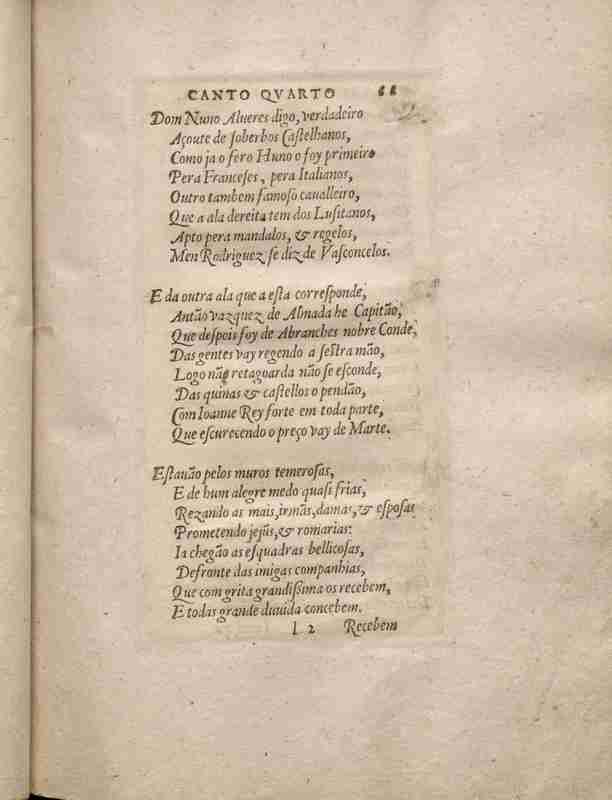 CANTO QVARTO 68
Dom Nuno Alueres digo, verdadeiro
Açoute de ſoberbos Caſtelhanos,
Como ja o fero Huno o foy primeiro
Pera Franceſes, pera Italianos,
Outro tambem famoſo caualleiro,
Que a ala dereita tem dos Luſitanos,
Apto pera mandalos, & regelos,
Men Rodriguez ſe diz de Vaſconcelos.
E da outra ala que a eſta correſponde,
Antão vazquez de Almada he Capitão,
Que deſpois foy de Abranches nobre Conde,
Das gentes vay regendo a ſeſtra mão,
Logo não retaguarda não ſe eſconde,
Das quinas & caſtellos o pendão,
Com Ioanne Rey forte em toda parte,
Que eſcurecendo o preço vay de Marte.
Eſtauão pelos muros temeroſas,
E de hum alegre medo quaſi frias,
Rezando as mais, irmãs, damas, & eſpoſas
Prometendo jejũs, & romarias:
Ia chegão as eſquadras bellicoſas,
Defronte das imigas companhias,
Que com grita grandiſſima os recebem,
E todas grande duuida concebem.
I 2 Recebem